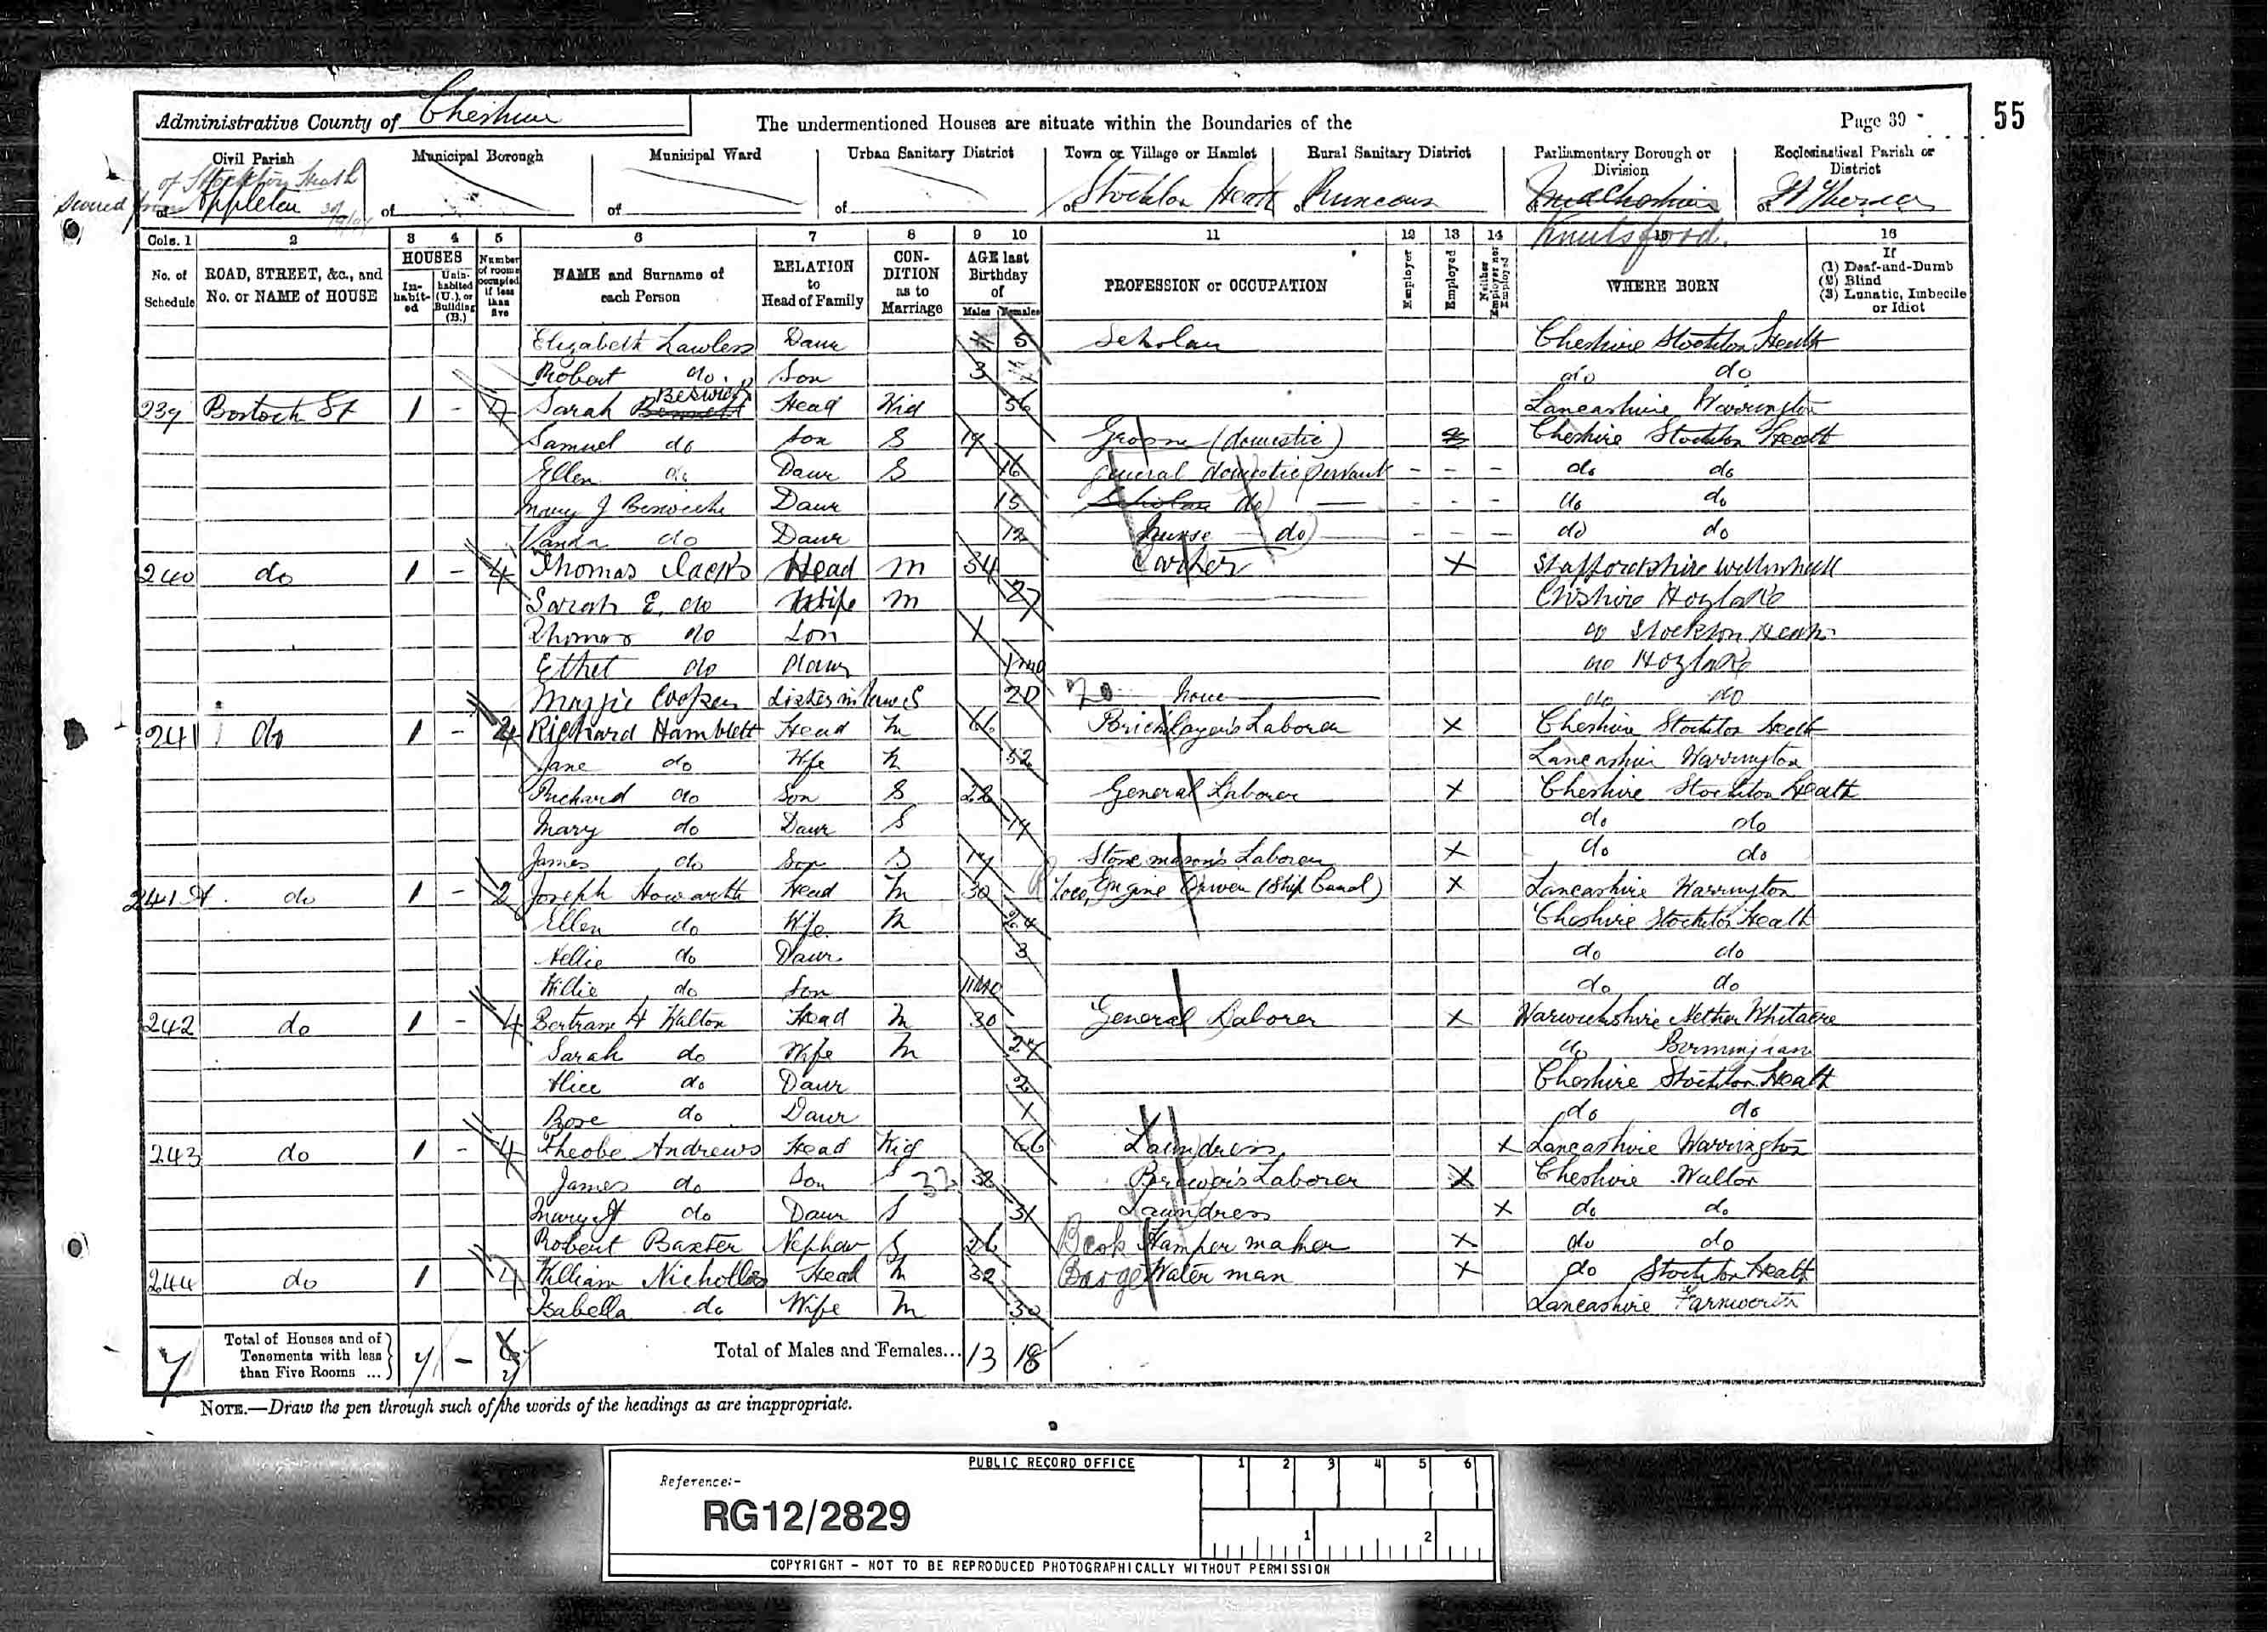 Administrative County of Cheshire
The undermentioned Houses are situate within the Boundaries of the
Page 39
55
Civil Parish
Municipal Borough
Municipal Ward
Urban Sanitary District
Town or Village or Hamlet
Rural Sanitary District
Parliamentary Borough or Division
Ecclesiastical Parish or District
of Stockton Heath
of Appleton
of
of
of
of Stockton Heath
of Runcorn
of Mid Cheshire
Knutsford
of St Thomas
Cols. 1 2 3 4 5 6 7 8 9 10 11 12 13 14 15 16
No. of Schedule
ROAD, STREET, &c., and No. or NAME of HOUSE
HOUSES
In-habit-ed
Unin-habited (U.), or Building (B.)
Number of rooms occupied if less than five
NAME and Surname of each Person
RELATION to Head of Family
CON-DITION as to Marriage
AGE last Birthday of
Males Females
PROFESSION or OCCUPATION
Employer
Employed
Neither Employer nor Employed
WHERE BORN
If
(1) Deaf-and-Dumb
(2) Blind
(3) Lunatic, Imbecile or Idiot
Elizabeth Lawless Daur 5 Scholar Cheshire Stockton Heath
Robert do. Son 3 do do
239 Bostock St 1 - Sarah Bennett Beswick Head Wid 56 Lancashire Warrington
Samuel do Son S 19 Groom (domestic) Cheshire Stockton Heath
Ellen do Daur S 16 General domestic servant - - - do do
Mary J Beswick Daur 15 Scholar do - - - do do
do Daur 12 Nurse do - - - do do
240 do 1 - 4 Thomas Jacks Head M 34 Carter X Staffordshire Willenhall
Sarah E. do Wife M 27 Cheshire Hoylake
Thomas do Son 1 do Stockton Heath
Ethel do daur 1 mo do Hoylake
Maggie Cooper Sister in law S 20 None do do
241 do 1 - 4 Richard Hamblett Head M 66 Bricklayer's Laborer X Cheshire Stockton Heath
Jane do Wife M 52 Lancashire Warrington
Richard do Son S 22 General Laborer X Cheshire Stockton Heath
Mary do Daur S 19 do do
James do Son S 17 Stone mason's Laborer X do do
241 A. do 1 - 2 Joseph Howarth Head M 30 Loco, Engine Driver (Ship Canal) X Lancashire Warrington
Ellen do Wife M 24 Cheshire Stockton Heath
Nellie do Daur 3 do do
Willie do Son 11 mo do do
242 do 1 - 4 Bertram H Walton Head M 30 General Laborer X Warwickshire Nether Whitacre
Sarah do Wife M 27 do Birmingham
Alice do Daur 2 Cheshire Stockton Heath
Rose do Daur 1 do do
243 do 1 - 4 Pheobe Andrews Head Wid 66 Laundress X Lancashire Warrington
James do Son S 32 Brewer's Laborer X Cheshire Walton
Mary A do Daur S 31 Laundress X do do
Robert Baxter Nephew S 26 Hamper maker X do do
244 do 1 4 William Nichollas Head M 32 Barge Water man X do Stockton Heath
Isabella do Wife M 30 Lancashire Farnworth
7 Total of Houses and of Tenements with less than Five Rooms ... 7 - 7 Total of Males and Females... 13 18
NOTE.—Draw the pen through such of the words of the headings as are inappropriate.
PUBLIC RECORD OFFICE
1 2 3 4 5 6
Reference:-
RG12/2829
1 2
COPYRIGHT - NOT TO BE REPRODUCED PHOTOGRAPHICALLY WITHOUT PERMISSION